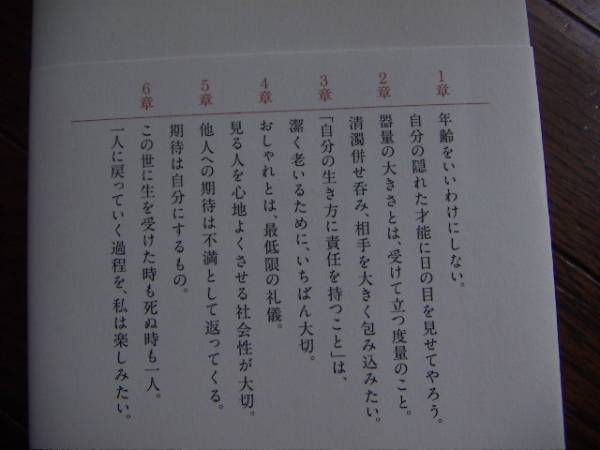 1章
年齢をいいわけにしない。
自分の隠れた才能に日の目を見せてやろう。
2章
器量の大きさとは、受けて立つ度量のこと。
清濁併せ呑み、相手を大きく包み込みたい。
3章
「自分の生き方に責任を持つこと」は、
潔く老いるために、いちばん大切。
4章
おしゃれとは、最低限の礼儀。
見る人を心地よくさせる社会性が大切。
5章
他人への期待は不満として返ってくる。
期待は自分にするもの。
6章
この世に生を受けた時も死ぬ時も一人。
一人に戻っていく過程を、私は楽しみたい。